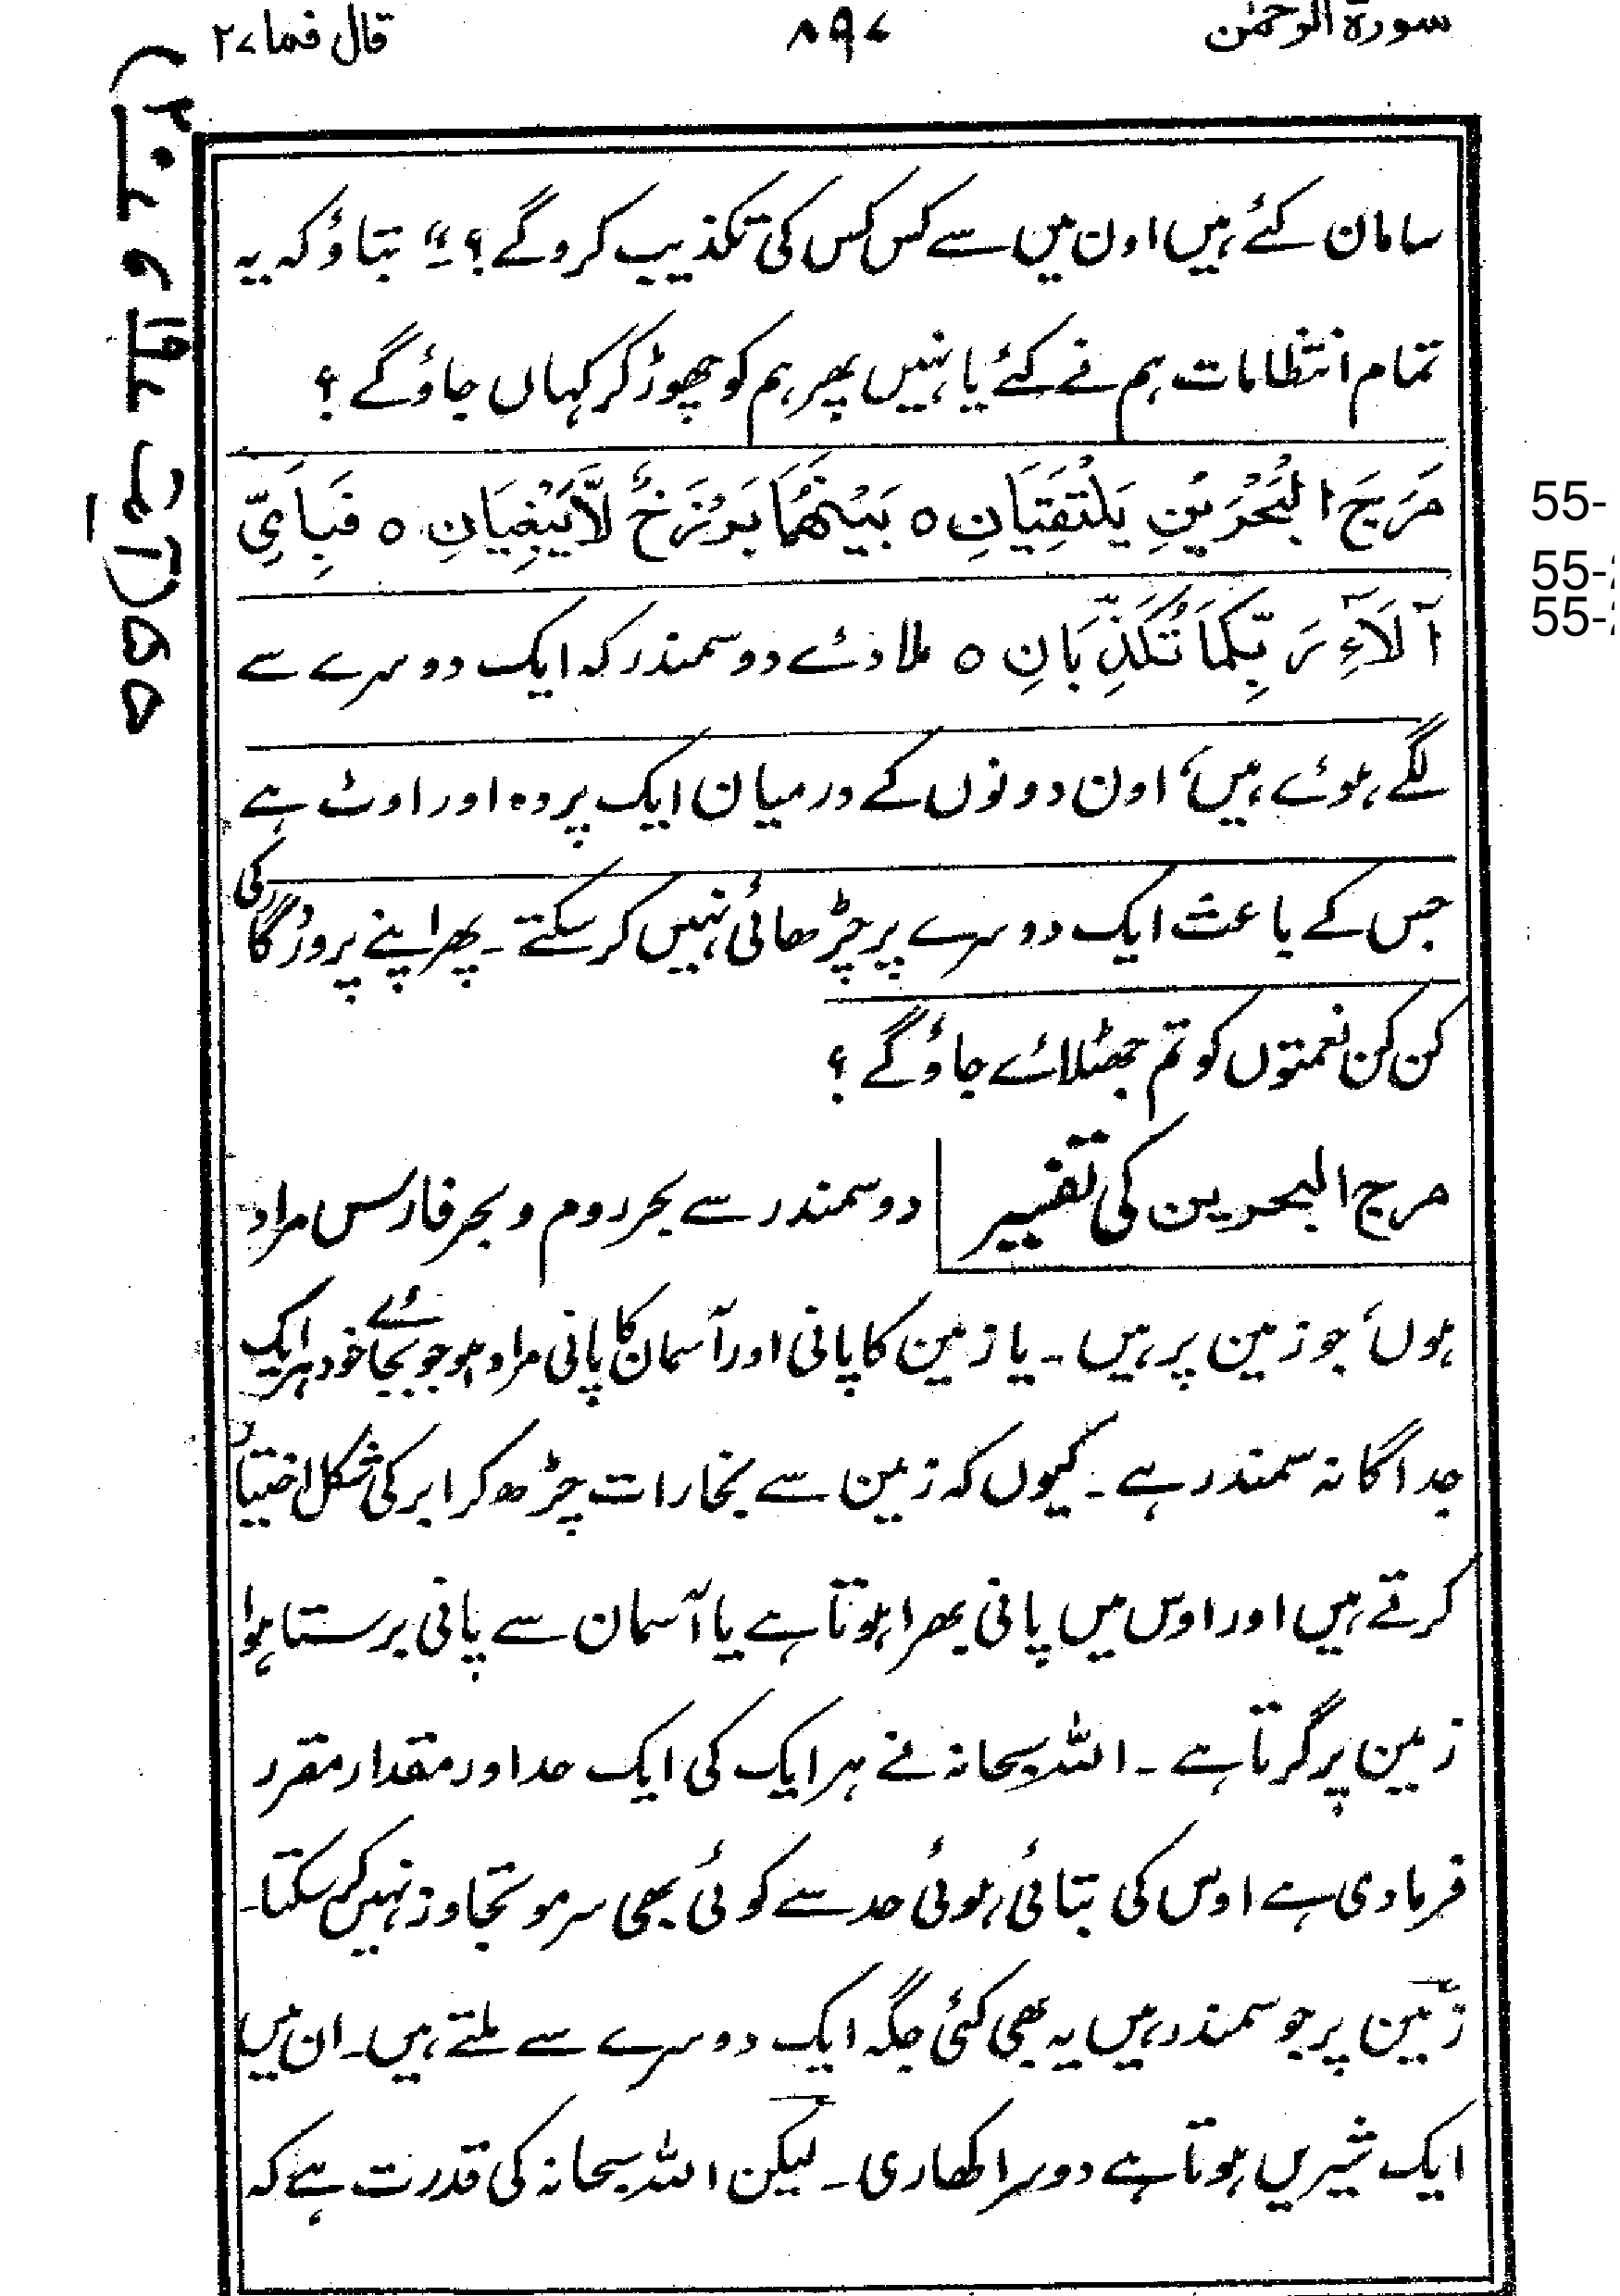 سورۃ الرحمٰن
۸۹۷
قال فما ۲۷
سامان کئے ہیں اون میں سے کس کس کی تکذیب کروگے؟" بتاؤ کہ یہ
تمام انتظامات ہم نے کئے یا نہیں پھر ہم کو چھوڑ کر کہاں جاؤگے؟
مَرَجَ الْبَحْرَيْنِ يَلْتَقِيَانِ ۝ بَيْنَهُمَا بَرْزَخٌ لَّا يَبْغِيَانِ ۝ فَبِاَيِّ
اٰلَآءِ رَبِّكُمَا تُكَذِّبَانِ ۝ ملادئے دو سمندر کہ ایک دوسرے سے
لگے ہوئے ہیں، اون دونوں کے درمیان ایک پردہ اور اوٹ ہے
جس کے باعث ایک دوسرے پر چڑھائی نہیں کرسکتے۔ پھر اپنے پروردگار کی
کن کن نعمتوں کو تم جھٹلائے جاؤگے؟
مرج البحرین کی تفسیر
دو سمندر سے بحر روم و بحر فارس مراد
ہوں، جو زمین پر ہیں۔ یا زمین کا پانی اور آسمان کا پانی مراد ہو جو بجائے خود ہر ایک
جداگانہ سمندر ہے۔ کیوں کہ زمین سے بخارات چڑھ کر ابر کی شکل اختیار
کرتے ہیں اور اوس میں پانی بھرا ہوتا ہے یا آسمان سے پانی برستا ہوا
زمین پر گرتا ہے۔ اللہ سبحانہ نے ہر ایک کی ایک حد اور مقدار مقرر
فرمادی ہے اوس کی بتائی ہوئی حد سے کوئی بھی سرمو تجاوز نہیں کرسکتا۔
زمین پر جو سمندر ہیں یہ بھی کئی جگہ ایک دوسرے سے ملتے ہیں۔ ان میں
ایک شیریں ہوتا ہے دوسرا کھاری۔ لیکن اللہ سبحانہ کی قدرت ہے کہ
55-
55-
55-